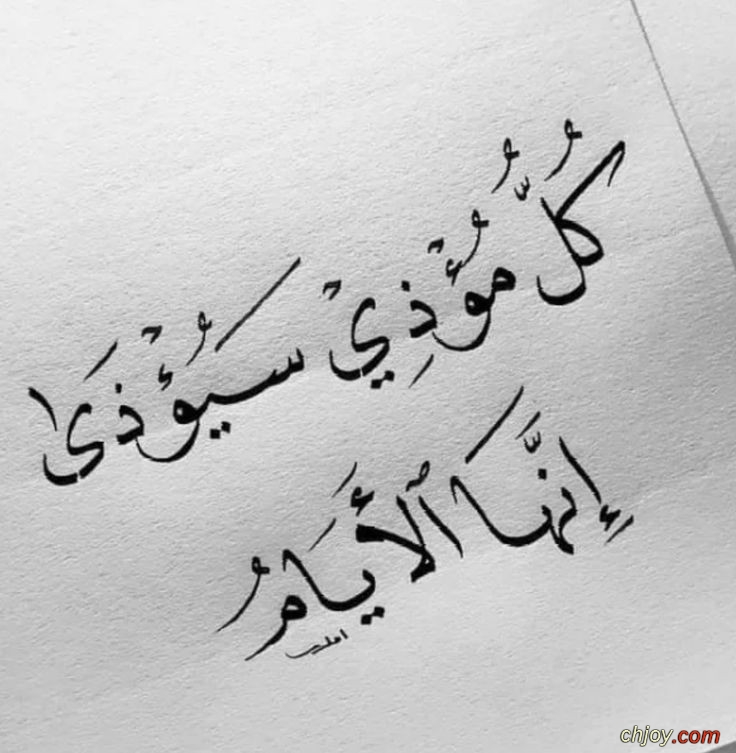 كُلُّ مُؤْذِيْ سَيُؤْذَىٰ
إِنَّهَا ٱلْأَيَّامُ
chjoy.com